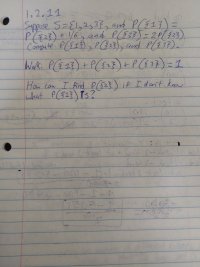 1.2.11
Suppose S={1,2,3}, and P({1}) =
P({2}) + 1/6, and P({3}) = 2P({2}).
Compute P({1}), P({2}), and P({3}).
Work: P({1}) + P({2}) + P({3}) = 1
How can I find P({2}) if I don't know
what P({1}) is?